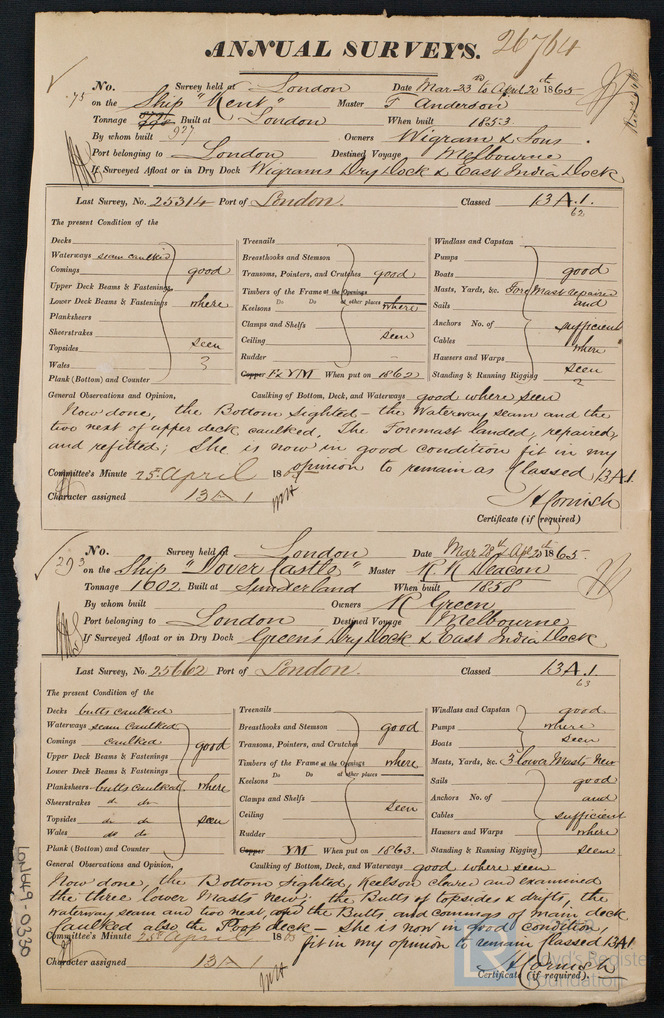 ANNUAL SURVEYS. 26764
No. 75 Survey held at London Date Mar 23rd to April 20th 1865
on the Ship "Kent" Master F Anderson
Tonnage 927 Built at London When built 1853
By whom built Owners Wigram & Sons.
Port belonging to London Destined Voyage Melbourne
If Surveyed Afloat or in Dry Dock Wigrams Dry Dock & East India Dock
Last Survey, No. 25314 Port of London. Classed 13 A.1.
62
The present Condition of the
Decks
Waterways seam caulked
Comings good
Upper Deck Beams & Fastenings
Lower Deck Beams & Fastenings where
Planksheers
Sheerstrakes
Topsides seen
Wales
Plank (Bottom) and Counter
Treenails
Breasthooks and Stemson
Transoms, Pointers, and Crutches good
Timbers of the Frame at the Openings
Do Do at other places where
Keelsons
Clamps and Shelfs
Ceiling seen
Rudder
Copper Fx YM When put on 1862
Windlass and Capstan
Pumps
Boats good
Masts, Yards, &c. Fore Mast repaired
Sails and
Anchors No. of sufficient
Cables where
Hawsers and Warps
Standing & Running Rigging seen
General Observations and Opinion, Caulking of Bottom, Deck, and Waterways good where seen
Now done, the Bottom Sighted - the Waterway seam and the
two next of upper deck caulked, The Foremast landed, repaired,
and refitted; She is now in good condition fit in my
opinion to remain as Classed 13 A1.
Committee's Minute 25 April 18
Character assigned 13 A 1
H Cornish
Certificate (if required)
No. 293 Survey held at London Date Mar 28th Apl 20th 1865
on the Ship "Dover Castle" Master K K Deacon
Tonnage 1002 Built at Sunderland When built 1858
By whom built Owners R Green
Port belonging to London Destined Voyage Melbourne
If Surveyed Afloat or in Dry Dock Green's Dry Dock & East India Dock
Last Survey, No. 25662 Port of London. Classed 13 A.1.
63
The present Condition of the
Decks butts caulked
Waterways seam caulked
Comings caulked good
Upper Deck Beams & Fastenings
Lower Deck Beams & Fastenings
Planksheers butts caulked where
Sheerstrakes do do
Topsides do do seen
Wales do do
Plank (Bottom) and Counter
Treenails
Breasthooks and Stemson good
Transoms, Pointers, and Crutches
Timbers of the Frame at the Openings where
Do Do at other places
Keelsons
Clamps and Shelfs
Ceiling seen
Rudder
Copper YM When put on 1863.
Windlass and Capstan good
Pumps where
Boats seen
Masts, Yards, &c. 3 lower Masts New
Sails good
Anchors No. of and
Cables sufficient
Hawsers and Warps where
Standing & Running Rigging seen
General Observations and Opinion, Caulking of Bottom, Deck, and Waterways good where seen
Now done, the Bottom Sighted, Keelson cleared and examined
the three lower Masts New; the Butts of topsides & drifts, the
waterway seam and two next, and the Butts, and comings of main deck
Caulked also the Poop deck - She is now in good condition,
Committee's Minute 25 April 18 fit in my opinion to remain Classed 13 A1
Character assigned 13 A 1
H Cornish
Certificate (if required).
LR Lloyd's Register
Foundation